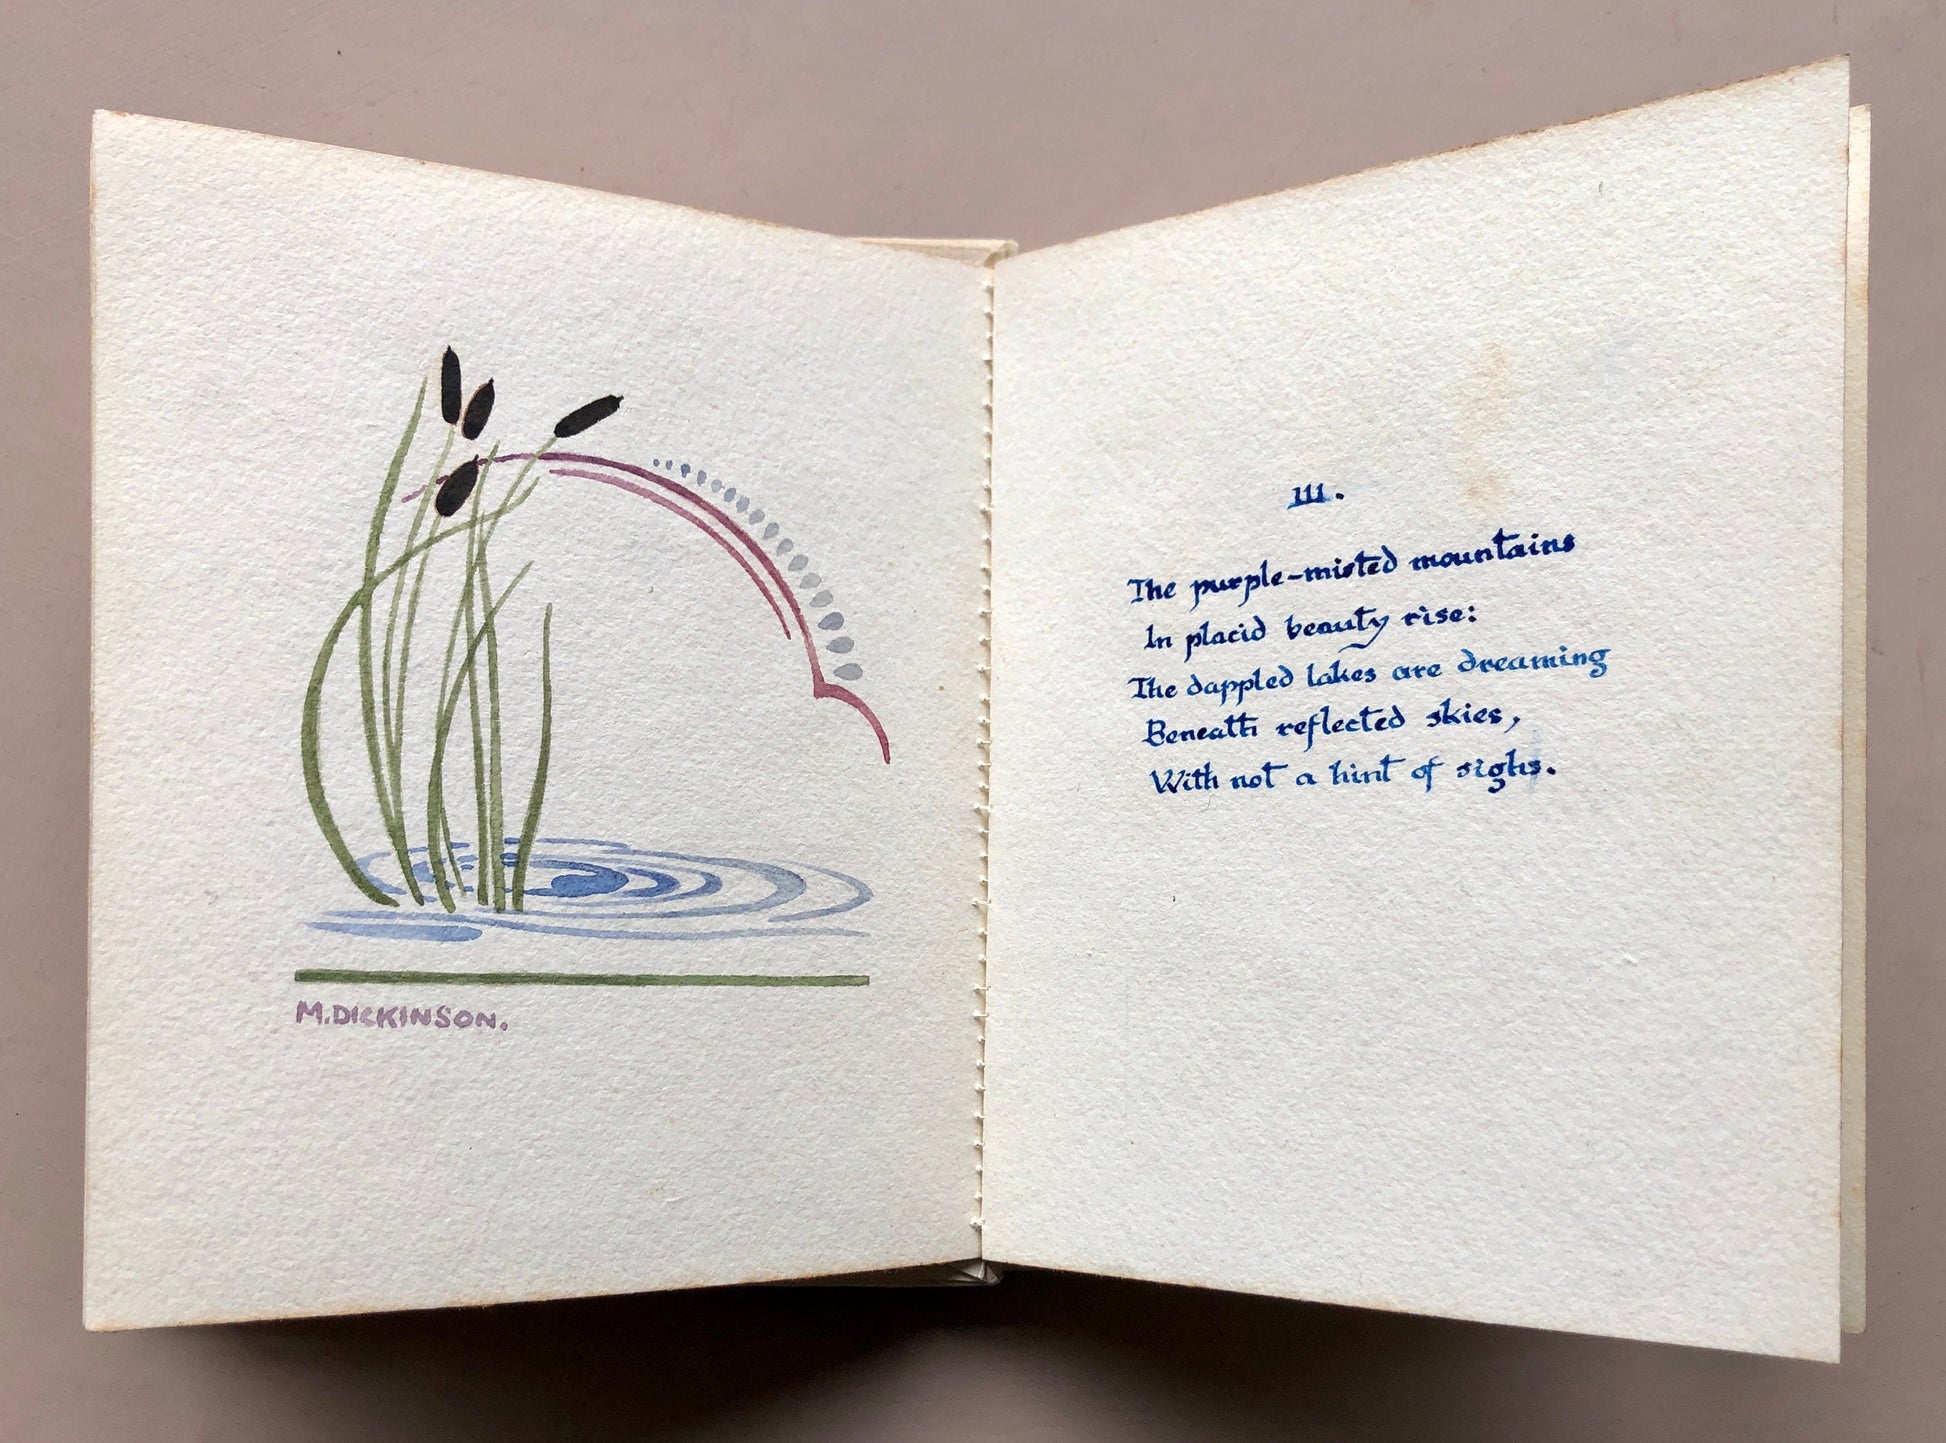 M.DICKINSON.
III.
The purple-misted mountains
In placid beauty rise:
The dappled lakes are dreaming
Beneath reflected skies,
With not a hint of sighs.